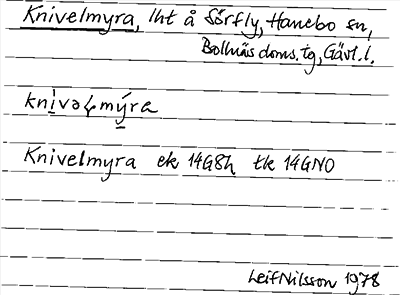 Knivelmyra, lht å Sörfly, Hanebo sn,
Bollnäs doms. tg, Gävl. l.
knìvəɬmýra
Knivelmyra ek 14G8h tk 14GNO
Leif Nilsson 1978